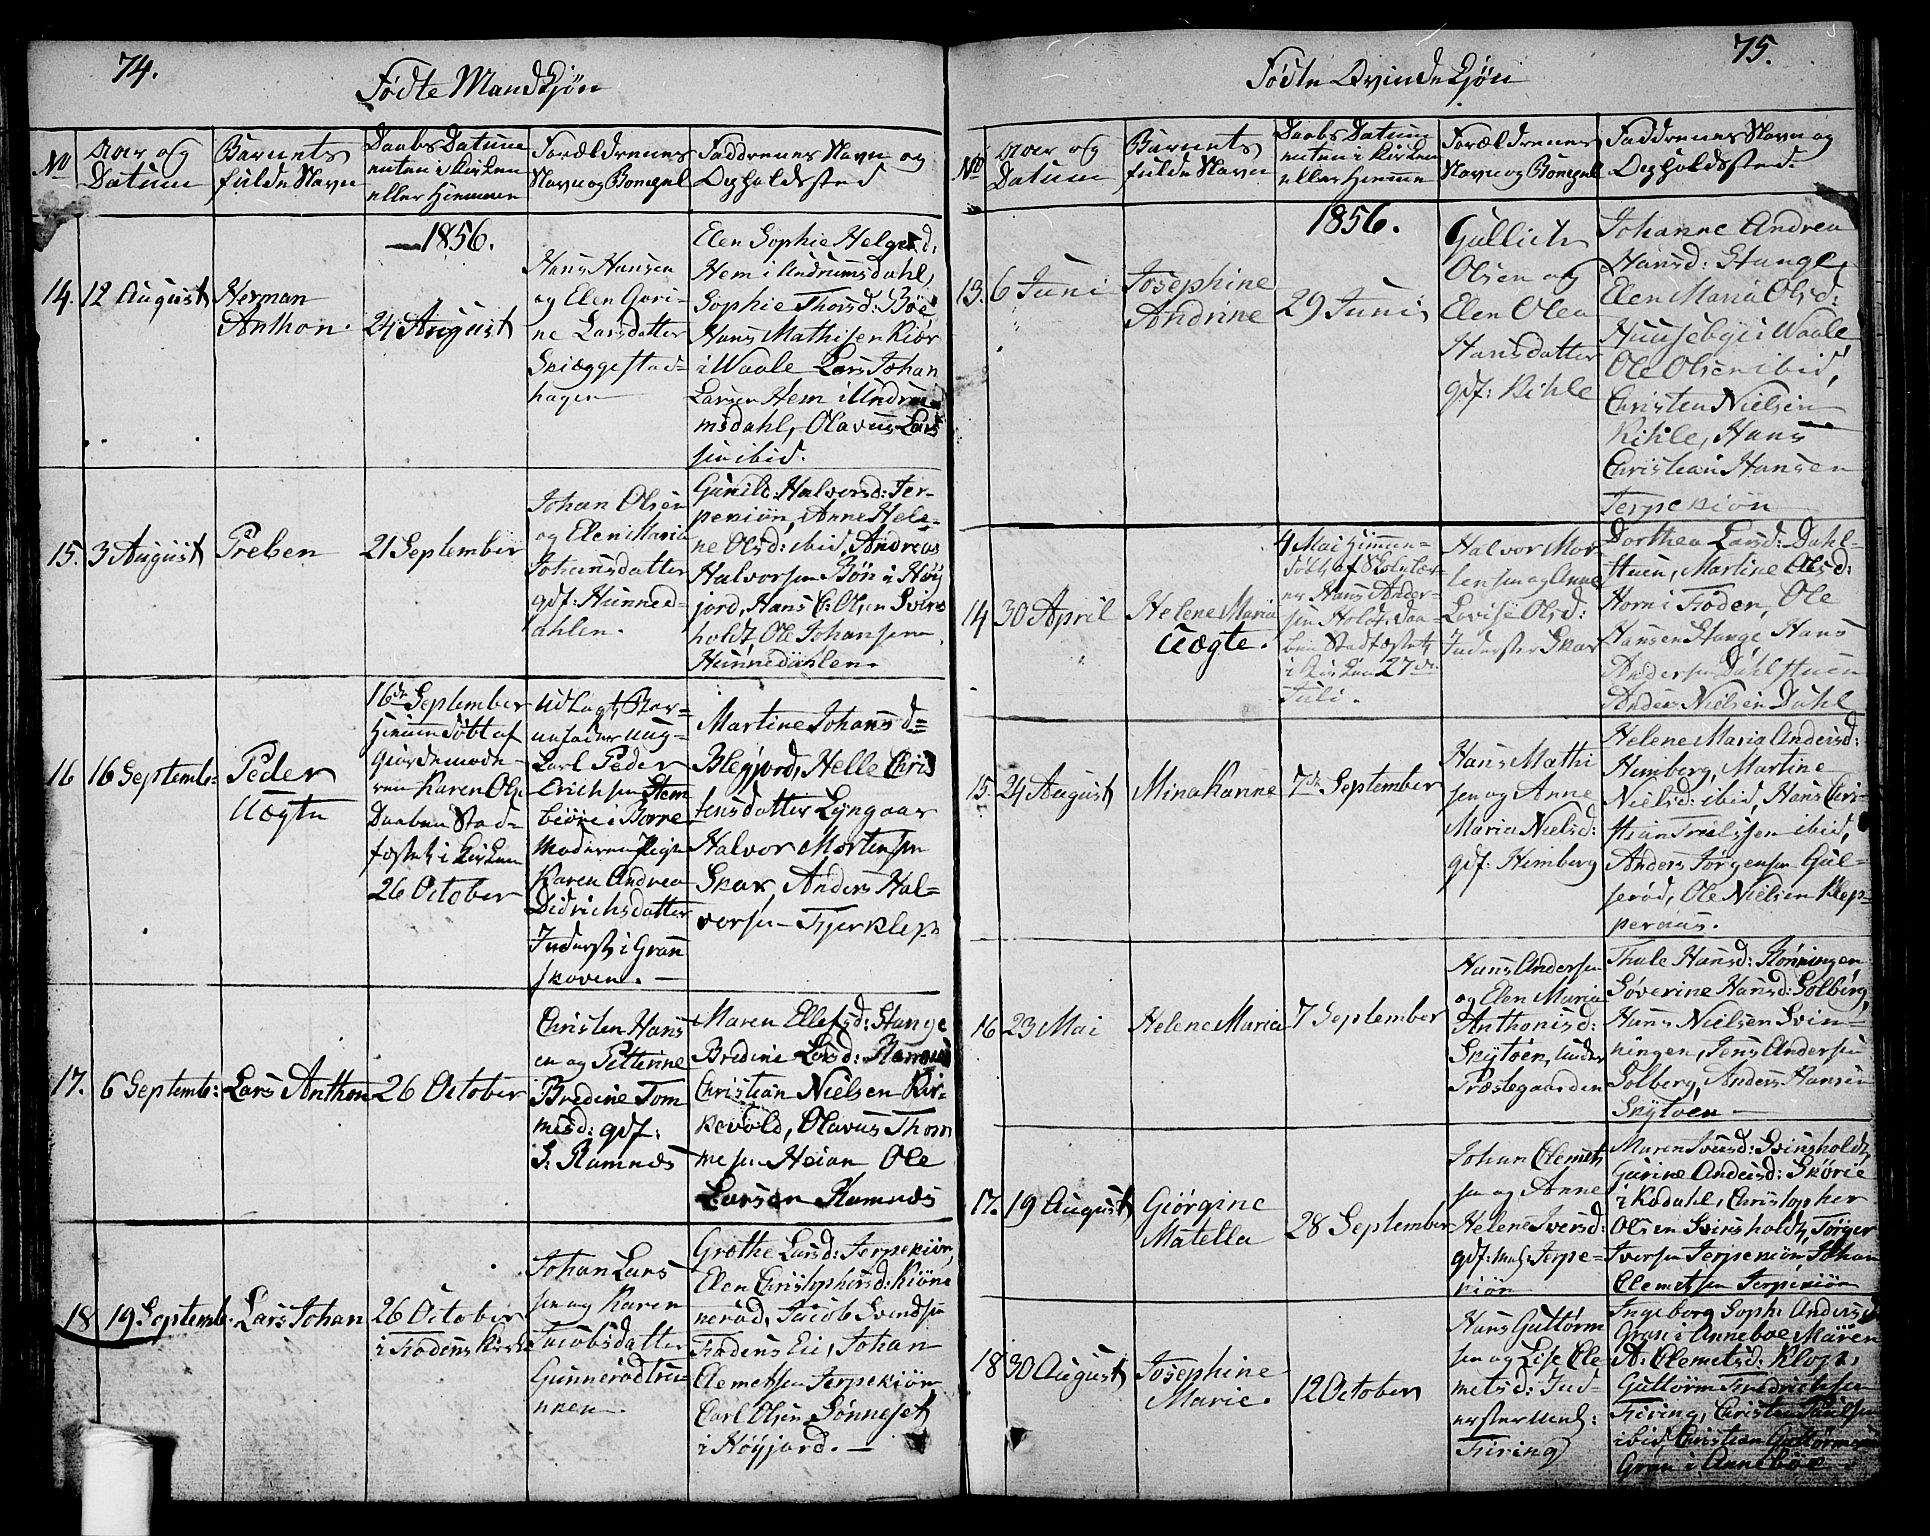 74.
Fødte Mandkjøn
No
Aar og
Datum
Barnets
fulde Navn
Daabs Datum
enten i Kirken
eller Hiemmen
Forældrenes
Navn og Bopæl
Faddrenes Navn og
Opholdssted
1856.
14.
12 August
Herman
Anthon.
24 August
Hans Hansen
og Elen Gori-
ne Larsdatter
Skiæggestad-
hagen
Elen Sophie Helgesd:
Hem i Undrumsdahl,
Sophie Thorsd: Bøe,
Hans Mathisen Kiør
i Waale Lars Johan
Larsen Hem i Undru-
msdahl, Olavus Lar-
sen ibid.
15.
3 August
Preben
21 September
Johan Olsen
og Elen Maria
Johansdatter
gdf: Hunned-
ahlen.
Gunild: Halvorsd: Jer-
pekiøn, Anne Hele-
ne Olsd: ibid, Andreas
Halvorsen Bøn i Høy
jord, Hans C: Olsen Svins
holdt Ole Johansen
Hunnedahlen.
16
16 Septembe:
Peder
Uægte
16de September
Hiemmedøbt af
Giordemode-
ren Karen Ols:
Daaben Stad-
fæstet i Kirken
26 October
Udlagt Bar-
nefader Ung-
karl Peder
Erichsen Stem
biøre i Borre
Moderen Pige
Karen Andrea
Didrichsdatter
Inderst i Gran
skoven.
Martine Johansd=
Blegjord, Helle Chris
tensdatter Lyngaas
Halvor Mortensen
Skar, Anders Hal-
vorsen Fjerklep
17.
6 Septemb:
Lars Anthon
26 October
Christen Hans
en og Petterine
Bredine Tom
mesd: gdf:
S: Ramnæs
Maren Ellefsd: Stange
Bredine Larsd: Ramnæs
Christian Nielsen Kir-
kevold, Olavus Thom
mesen Heian, Ole
Larsen Ramnæs
18
19 Septemb.
Lars Johan
26 October
i Fodens Kirke
Johan Lars
sen og Karen
Jacobsdatter
Gunnerød
Grethe Larsd: Jerpekiøn,
Elen Christophersd: Kiøne
nerød, Jacob Svendsen
Fodens Eie, Johan
Clemetsen Jerpekiøn
Carl Olsen Sønneset
i Høyjord.
75.
Fødte Qvindekjøn
No
Aar og
Datum
Barnets
fulde Navn
Daabs Datum
enten i Kirken
eller Hiemme
Forældrenes
Navn og Bopæl
Faddrenes Navn og
Opholdssted.
1856.
13.
6 Juni
Josephine
Andrine
29 Juni
Gullich
Olsen og
Elen Olea
Hansdatter
gdf: Kihle
Johanne Andrea
Hansd: Stange,
Elen Maria Olsd:
Huusebye i Waale
Ole Olsen ibid,
Christen Nielsen
Kihle, Hans
Christian Hansen
Jerpekiøn
14
30 April
Helene Maria
Uægte.
4 Mai Hiemme-
døbt af Skolelær-
er Hans Ander-
sen Holdt. Daa-
ben Stadfæstet
i Kirken 27de
Juli.
Halvor Mor-
tensen og Anne
Lovise Olsd:
Inderster Skar
Dorthea Larsd: Dahl-
stuen, Martine Olsd:
Horn i Foden, Ole
Hansen Stange, Hans
Andersen Dahlstuen
Anders Nielsen Dahl
15.
24 August
Mina Hanne
7de September
Hans Mathi
sen og Anne
Maria Nielsd:
gdf: Himberg
Helene Maria Andersd:
Himberg, Martine
Nielsd: ibid, Hans Chri-
stian Troelssen ibid,
Anders Jørgensen Gul-
serød, Ole Nielsen Klep-
peraas.
16
23 Mai
Helene Maria
7 September
Hans Andersen
og Elen Maria
Anthonisd:
Skytøen, under
Præstegaarden
Thale Hansd: Rønningen
Søverine Hansd: Solberg,
Hans Nielsen Svin-
ningen, Jens Andersen
Solberg, Anders Hansen
Skytøen
17.
19 August
Giørgine
Matella
28 September
Johan Clemet
sen og Anne
Helene Iversd:
gdf: Jerpe-
kiøn
Maren Iversd: Svinsholdt
Gurine Andersd: Skørie
i Kodahl, Christopher
Olsen Svinsholdt, Tørger
Iversen Jerpekiøn Johan
Clemetsen Jerpekiøn
18
30 August
Josephine
Marie.
12 October
Hans Guttorm
sen og Lise Cle
metsd: Ind-
erster
Firing
Ingeborg Soph: Andersd
Gran i Anneboe Maren
A: Clemetsd: Klop,
Guttorm Fredrichsen
Firing, Christen
ibid, Christian Guttormsen
Gran i Anneboe.